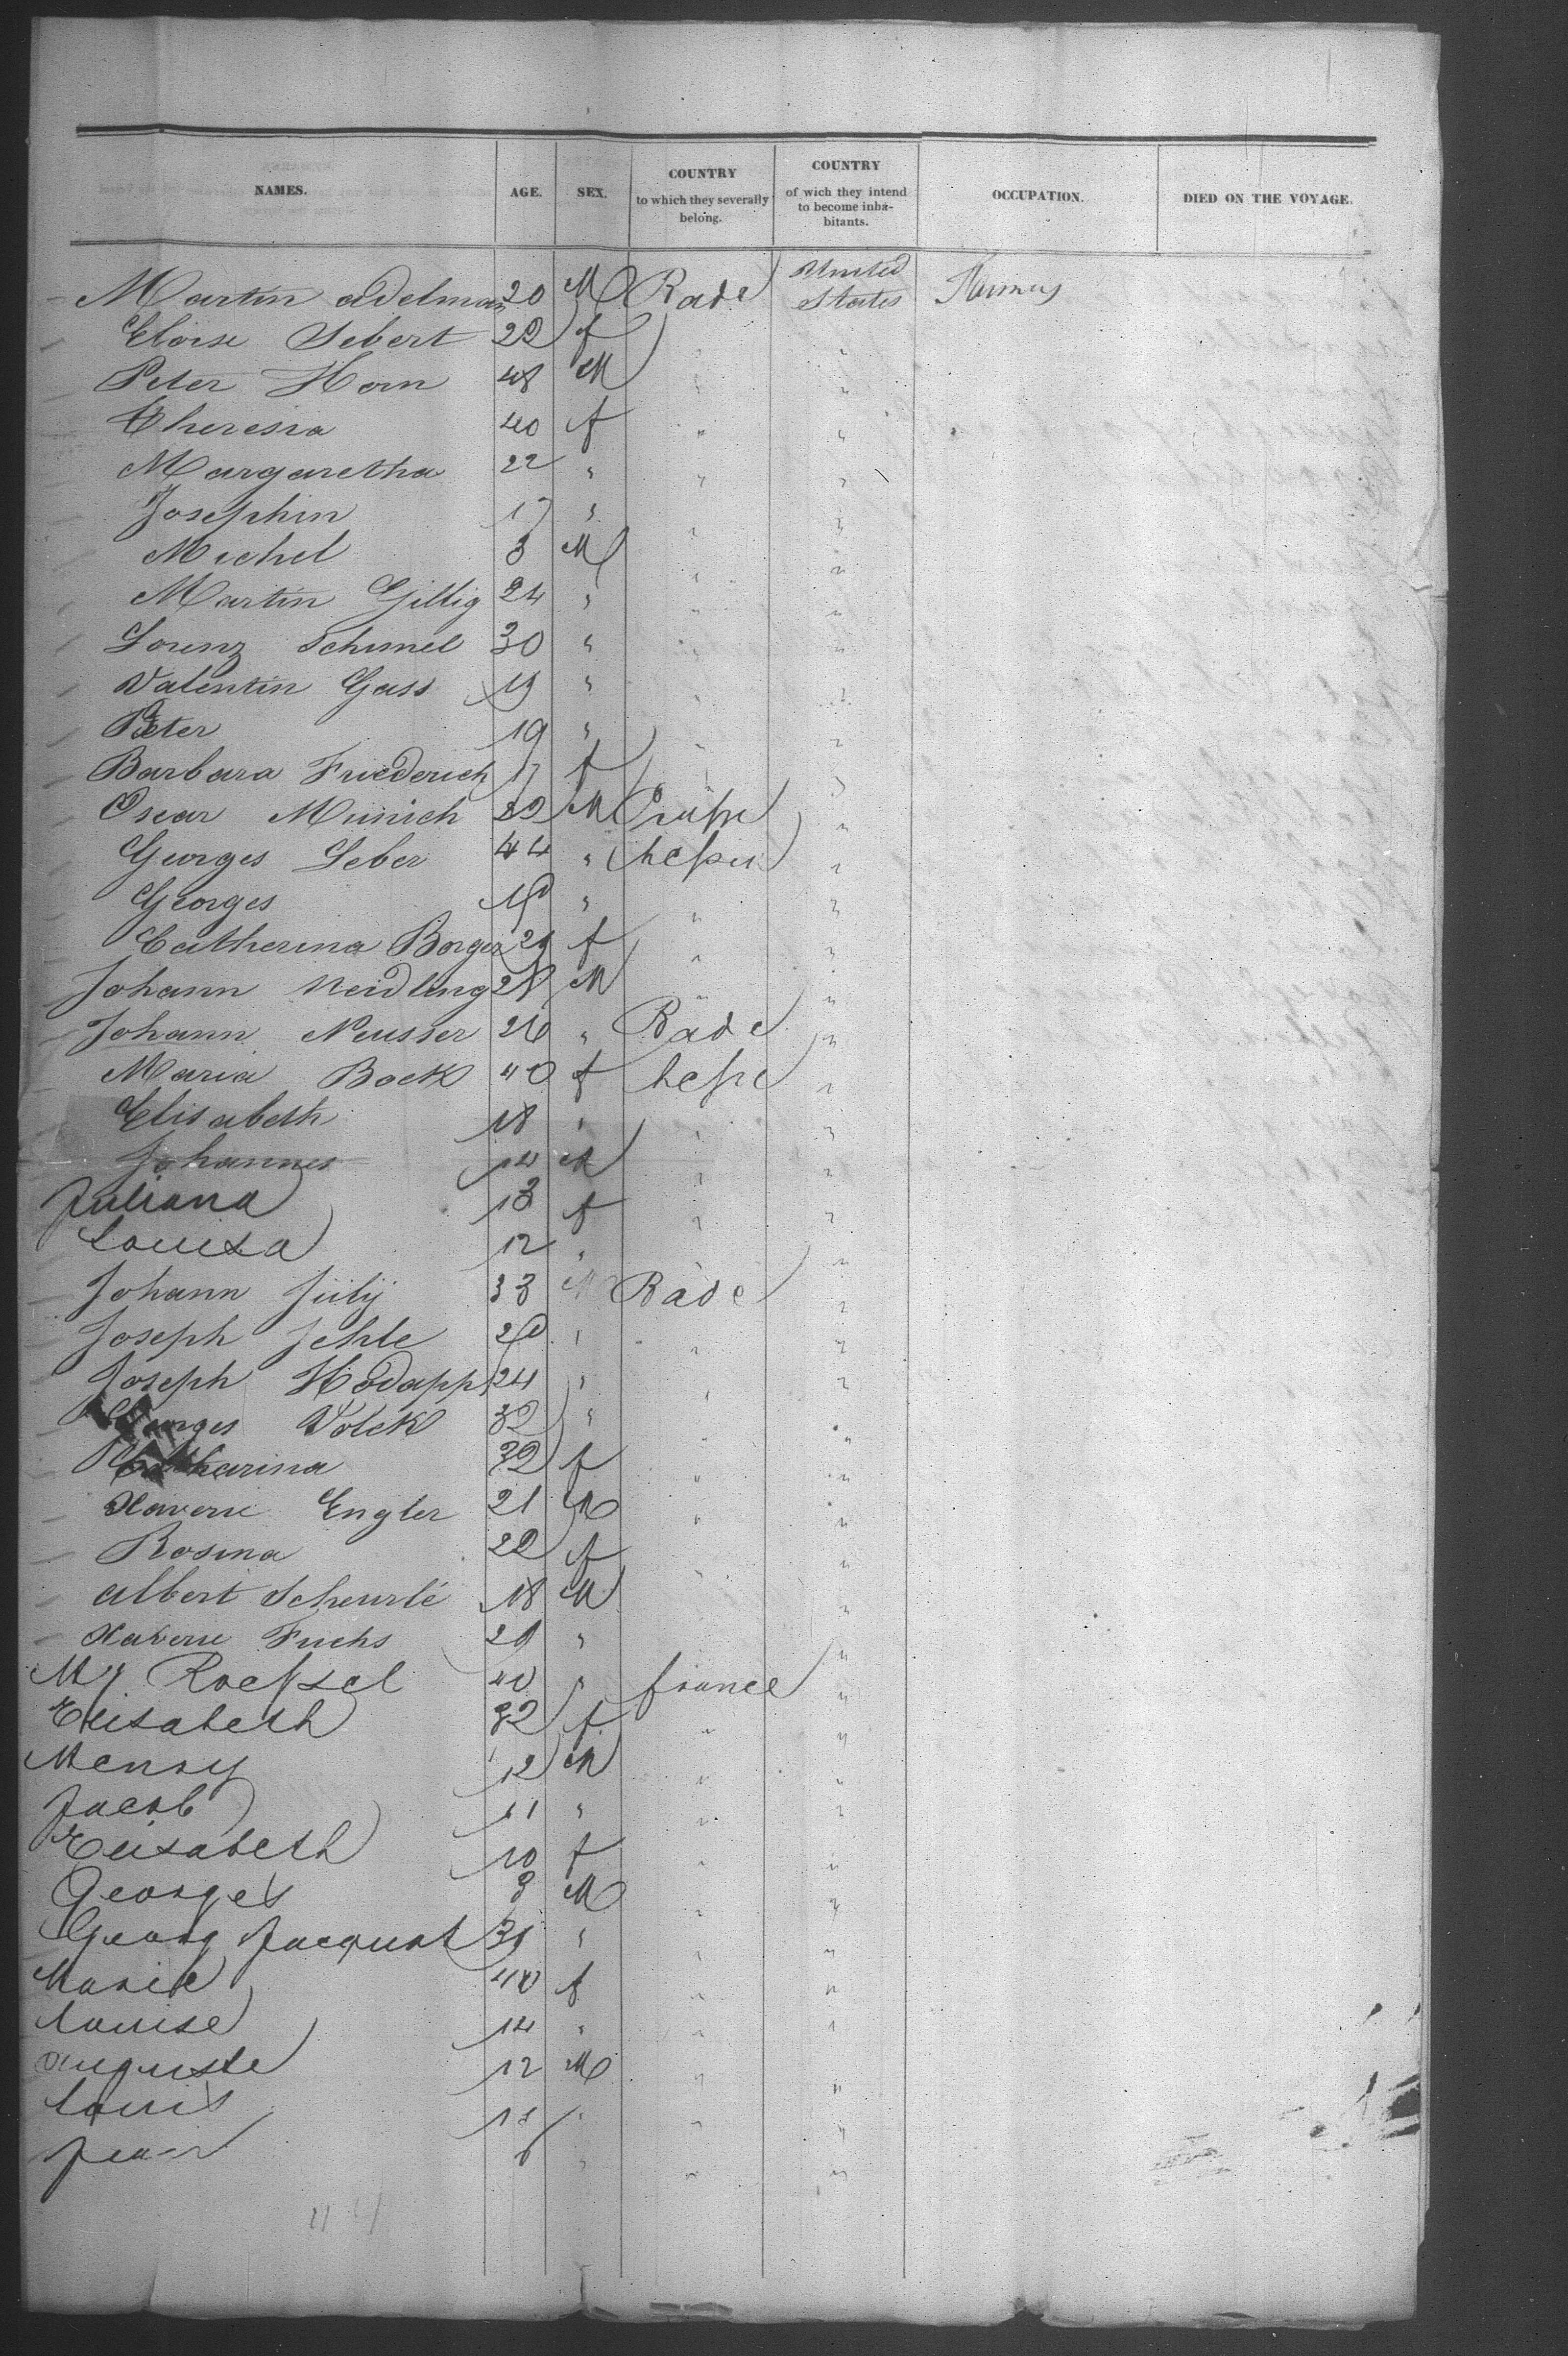 NAMES. AGE. SEX. COUNTRY to which they severally belong. COUNTRY of wich they intend to become inha- bitants. OCCUPATION. DIED ON THE VOYAGE.
Martin adelman 20 M Bade United States
Eloise Sebert 22 f " "
Peter Horn 48 M " "
Theresia 40 f " "
Margaretha 22 " " "
Josephin 17 " " "
Michel 3 M " "
Martin Gillig 24 " " "
Lorenz Schimel 30 " " "
Valentin Gass 19 " " "
Peter 19 " " "
Barbara Friederich 17 f " "
Oscar Münich 29 M "
Georges Leber 44 " "
Georges " " "
Catherina Borger 29 f " "
Johann Neidling 28 M " "
Johann Neusser 26 " Bade "
Maria Bock 40 f hesse "
Elisabeth 18 " " "
Johannes 14 M " "
Juliana 13 f " "
Louisa 12 " "
Johann July 33 M Bade "
Joseph Jehle 20 " " "
Joseph Hodapp 24 " " "
Georges Volck 32 " " "
Catharina 32 f " "
Xaverie Engler 21 M " "
Rosina 22 f " "
albert Scheurlé 18 M " "
Xaverie Fuchs 29 " "
Mr Roessel 40 " france "
Elisabeth 32 f " "
Henry 12 M " "
Jacob 11 " " "
Elisabeth 10 f " "
Georges 8 M " "
Georg Jacquot 39 " " "
Marie 40 f " "
Louise 14 " " "
auguste 12 M " "
Louis " " "
Jean 6 " " "
44